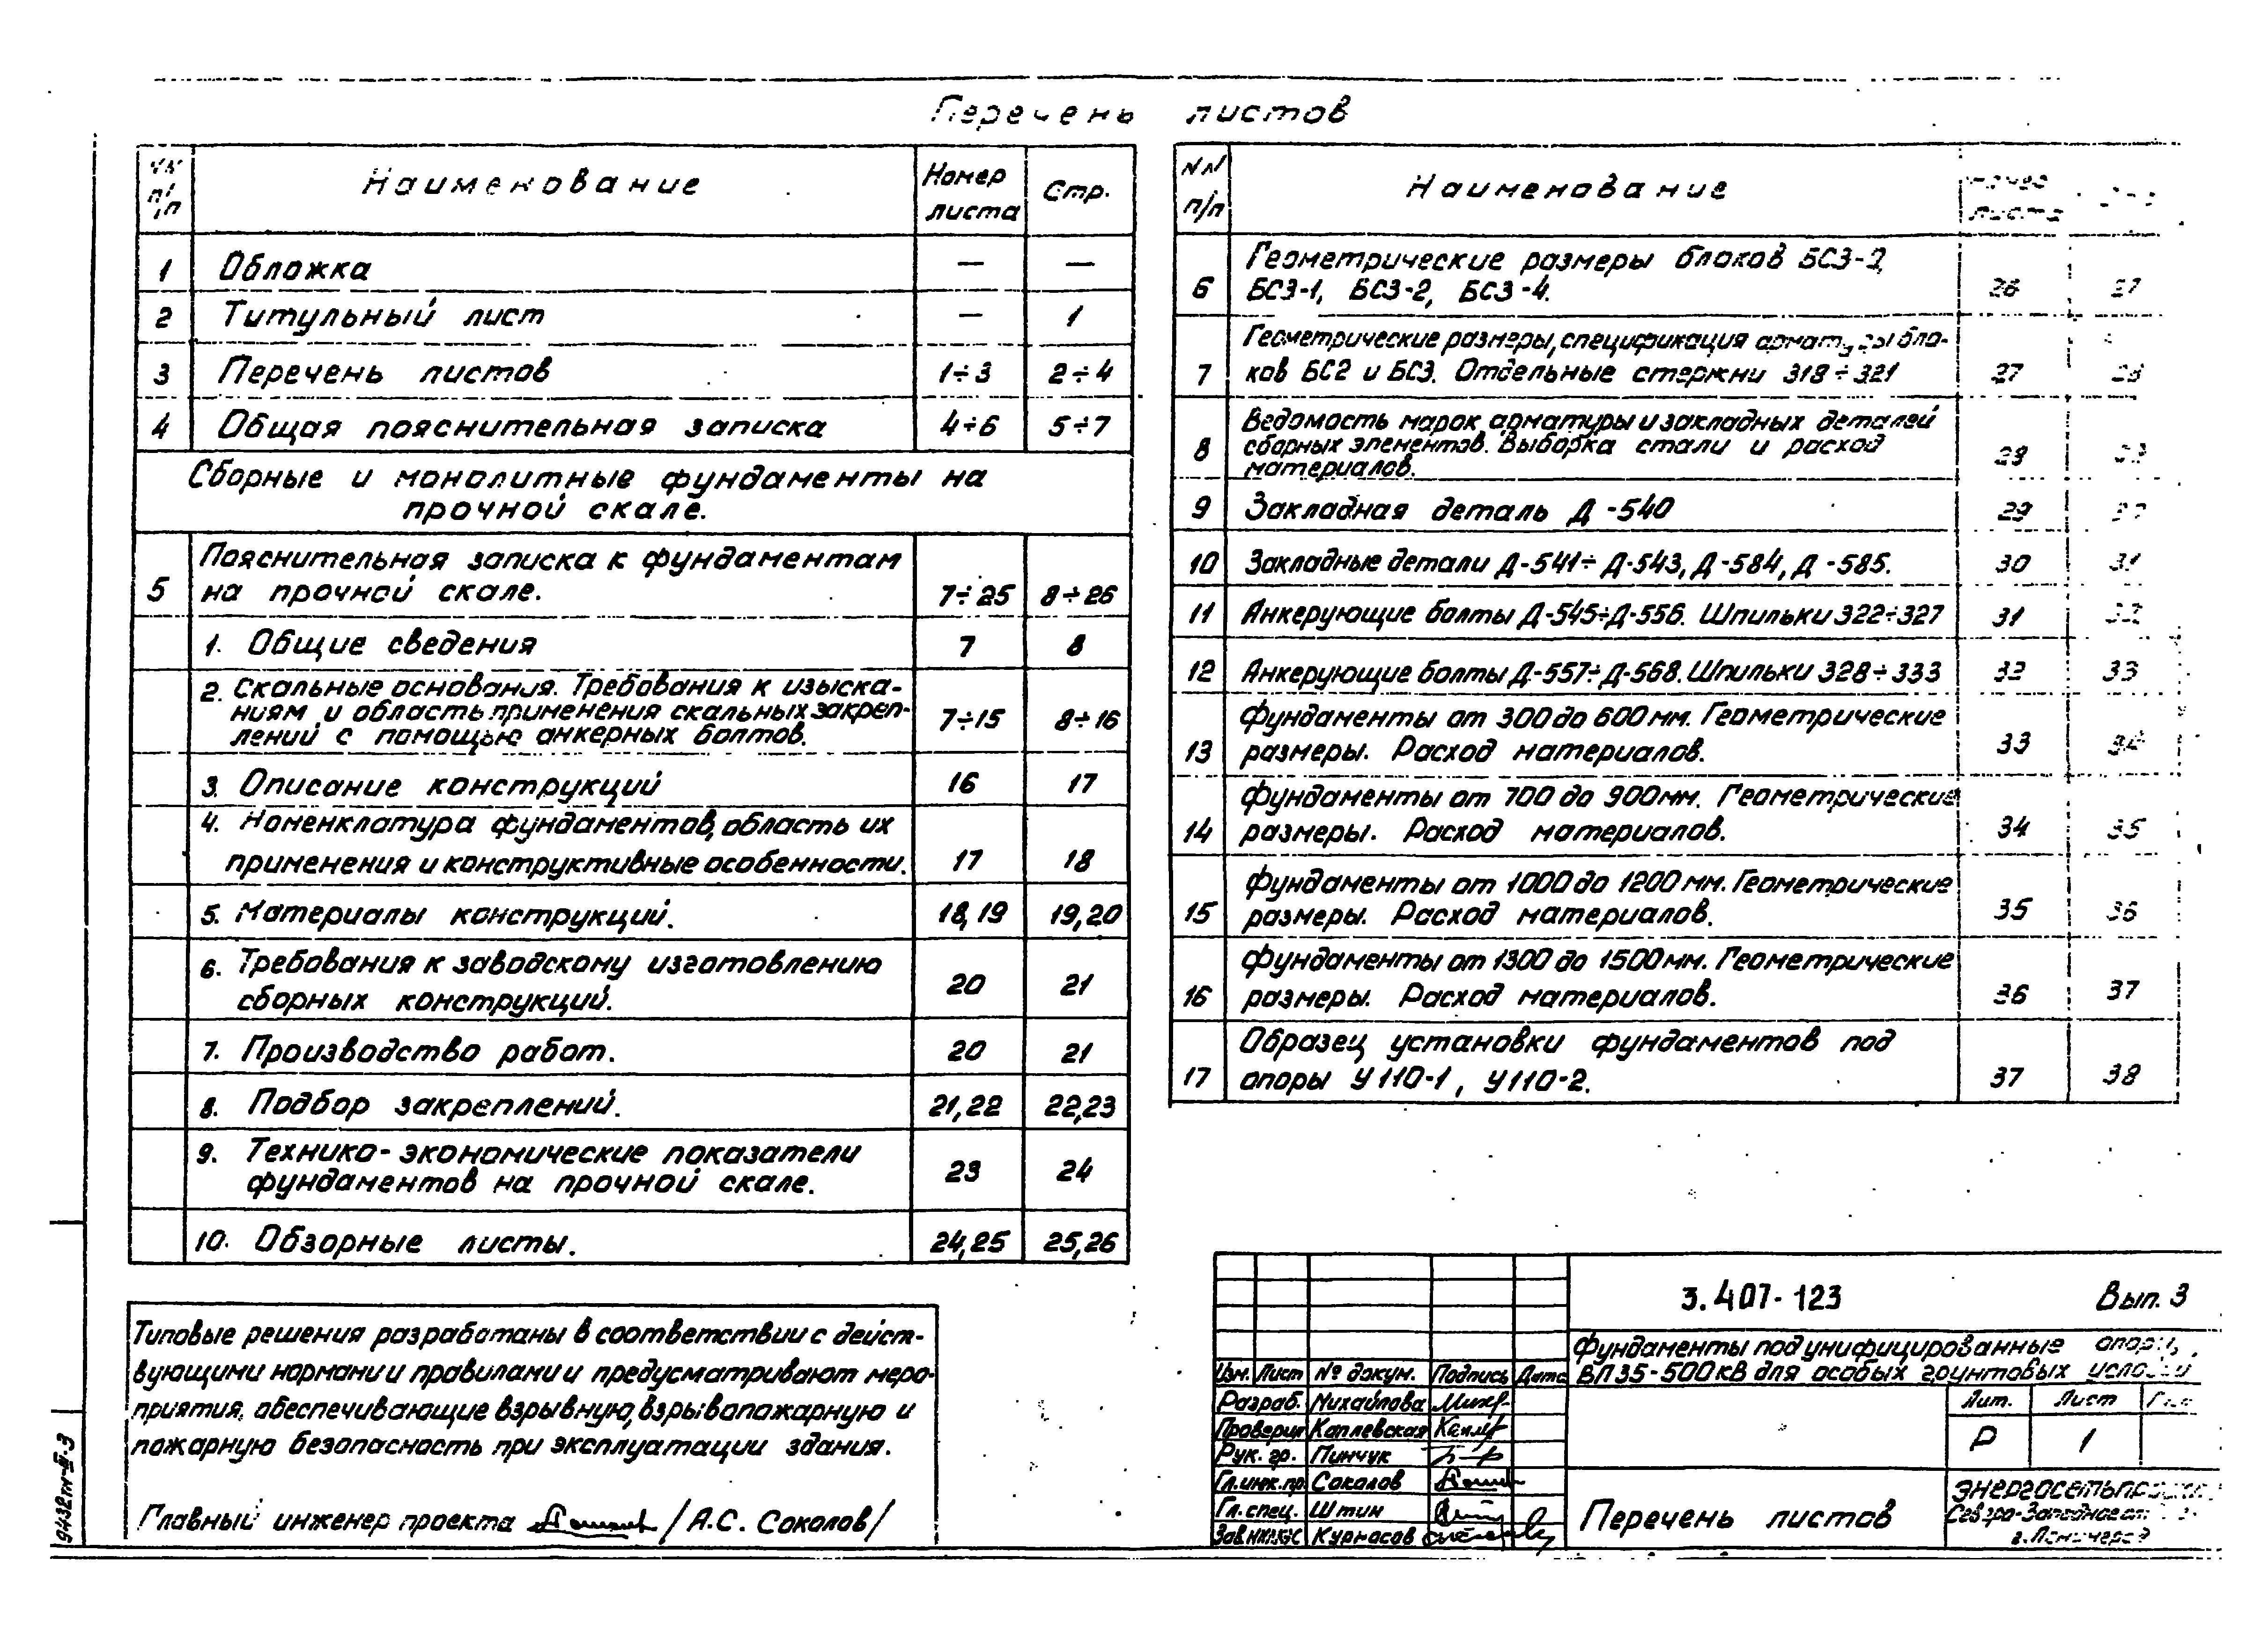 Перечень листов
NN п/п
Наименование
Номер листа
Стр.
1 Обложка — —
2 Титульный лист — 1
3 Перечень листов 1÷3 2÷4
4 Общая пояснительная записка 4÷6 5÷7
Сборные и монолитные фундаменты на
прочной скале.
Пояснительная записка к фундаментам
5 на прочной скале. 7÷25 8÷26
1. Общие сведения 7 8
2. Скальные основания. Требования к изыска-
ниям и область применения скальных закреп-
лений с помощью анкерных болтов. 7÷15 8÷16
3. Описание конструкций 16 17
4. Номенклатура фундаментов, область их
применения и конструктивные особенности. 17 18
5. Материалы конструкций. 18,19 19,20
6. Требования к заводскому изготовлению
сборных конструкций. 20 21
7. Производство работ. 20 21
8. Подбор закреплений. 21,22 22,23
9. Технико-экономические показатели
фундаментов на прочной скале. 23 24
10. Обзорные листы. 24,25 25,26
NN п/п
Наименование
листа
Геометрические размеры блоков
6 БС3-1, БС3-2, БС3-4. 26 27
Геометрические размеры, спецификация арматуры бло-
7 ков БС2 и БС3. Отдельные стержни 318÷321 27
Ведомость марок арматуры и закладных деталей
8 сборных элементов. Выборка стали и расход
материалов.
9 Закладная деталь Д-540 29
10 Закладные детали Д-541÷Д-543, Д-584, Д-585. 30 31
11 Анкерующие болты Д-545÷Д-556. Шпильки 322÷327 31 32
12 Анкерующие болты Д-557÷Д-568. Шпильки 328÷333 32 33
Фундаменты от 300 до 600 мм. Геометрические
13 размеры. Расход материалов. 33 34
Фундаменты от 700 до 900 мм. Геометрические
14 размеры. Расход материалов. 34 35
Фундаменты от 1000 до 1200 мм. Геометрические
15 размеры. Расход материалов. 35 36
Фундаменты от 1300 до 1500 мм. Геометрические
16 размеры. Расход материалов. 36 37
Образец установки фундаментов под
17 опоры У110-1, У110-2. 37 38
Типовые решения разработаны в соответствии с дейст-
вующими нормами и правилами и предусматривают меро-
приятия, обеспечивающие взрывную, взрывопожарную и
пожарную безопасность при эксплуатации здания.
Главный инженер проекта /А.С. Соколов/
9432тм-III-3
3.407-123 Вып. 3
Фундаменты под унифицированные опоры
ВЛ 35-500 кВ для особых грунтовых условий
Изм. Лист № докум. Подпись Дата
Разраб. Михайлова
Проверил Каплевская
Рук. гр. Пинчук
Гл. инж. пр. Соколов
Гл. спец. Штин
Курносов
Лит. Лист
Р 1
Перечень листов
Энергосетьпроект
Северо-Западное
г. Ленинград